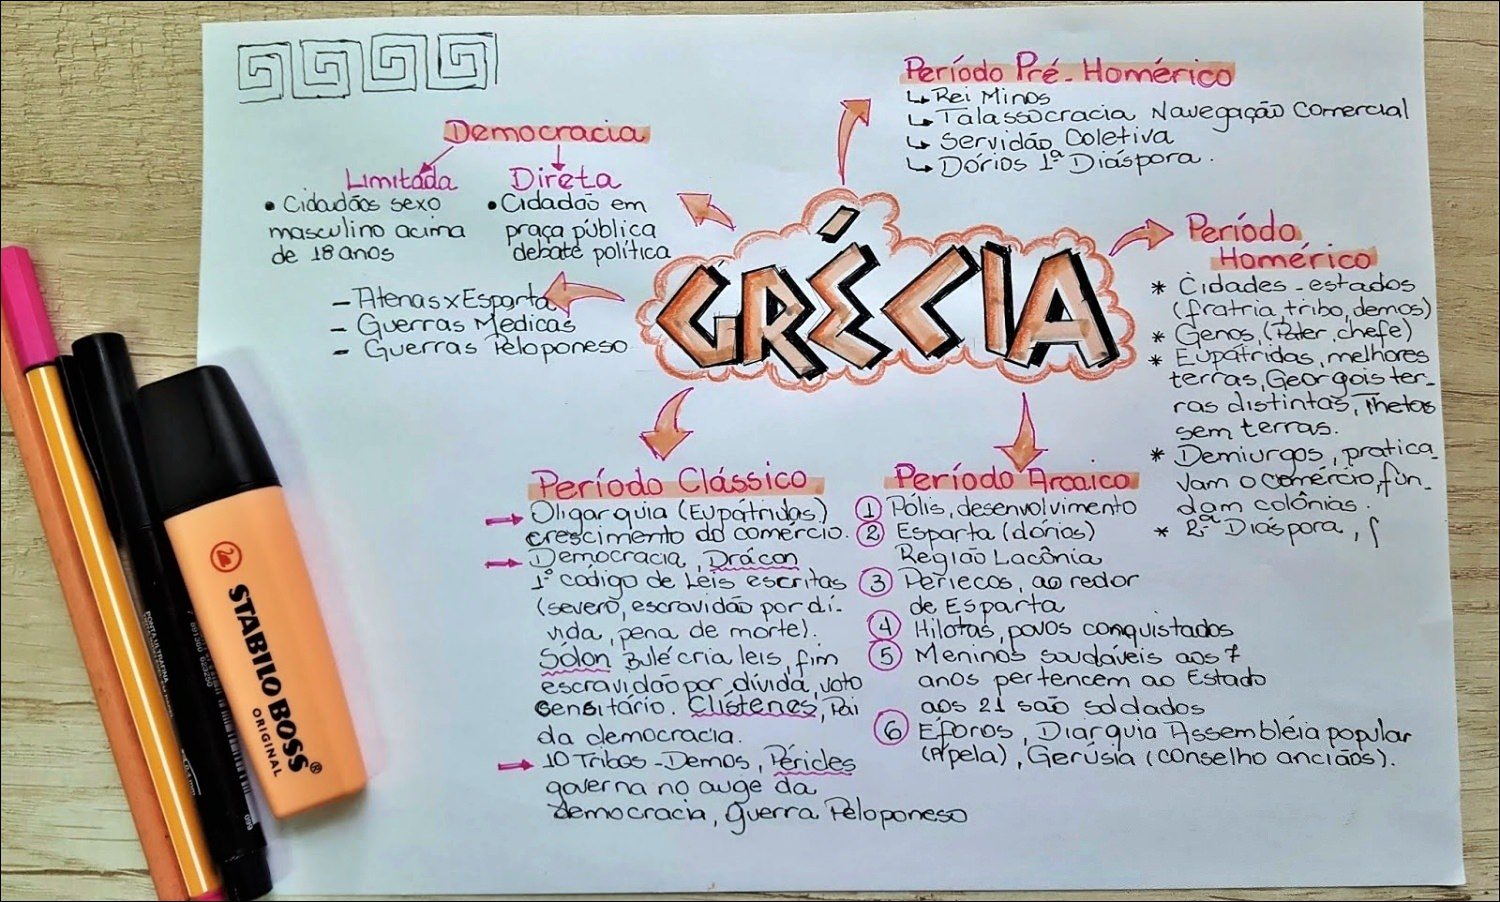 GRÉCIA
Período Pré-Homérico
Rei Minos
Talassocracia Navegação Comercial
Servidão Coletiva
Dórios 1ª Diáspora.
Período
Homérico
* Cidades-estados
(fratria, tribo, demos)
* Genos, (Pater, chefe)
* Eupátridas, melhores
terras, Georgois ter-
ras distintas, Thetas
sem terras.
* Demiurgos, pratica-
vam o comércio, fun-
dam colônias.
* 2ª Diáspora,
Democracia
Limitada
• Cidadãos sexo
masculino acima
de 18 anos
Direta
• Cidadão em
praça pública
debate política
- Atenas x Esparta
- Guerras Medicas
- Guerras Peloponeso
Período Clássico
Oligarquia (Eupátridas)
crescimento do comércio.
Democracia, Drácon
1º código de Leis escritas
(severo, escravidão por dí-
vida, pena de morte).
Sólon Bulé cria leis, fim
escravidão por dívida, voto
censitário. Clístenes, Pai
da democracia.
10 Tribos - Demos, Péricles
governa no auge da
democracia, guerra Peloponeso
Período Arcaico
1 Pólis, desenvolvimento
2 Esparta (dórios)
Região Lacônia
3 Periecos, ao redor
de Esparta
4 Hilotas, povos conquistados
5 Meninos saudáveis aos 7
anos pertencem ao Estado
aos 21 são soldados
6 Éforos, Diarquia Assembléia popular
(Ápela), Gerúsia (conselho anciãos).
STABILO BOSS®
ORIGINAL